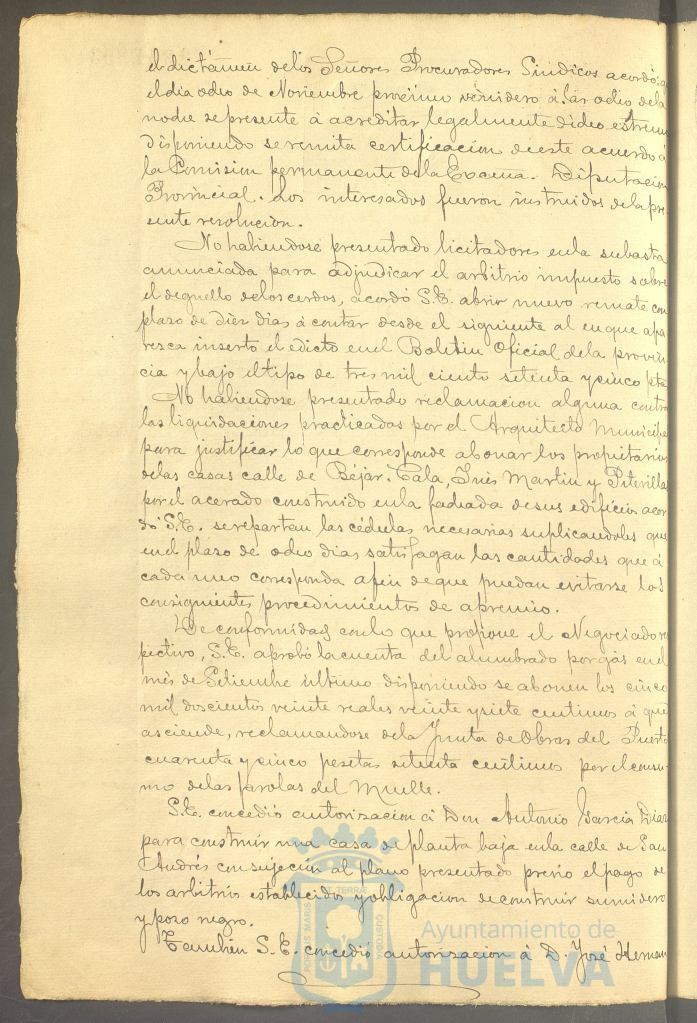 el dictámen delos Señores Procuradores Sindicos acordó:
el dia ocho de Noviembre procsimo venidero á las ocho dela
noche se presente á acreditar legalmente dicho estremo
disponiendo se remita certificacion de este acuerdo á
la Comision permanente dela Excma. Diputacion
Provincial. Los interesados fueron instruidos dela pre-
sente resolucion.
No habiendose presentado licitadores enla subasta
anunciada para adjudicar el arbitrio impuesto sobre
el deguello delos cerdos, acordó S.E. abrir nuevo remate con
plazo de diez dias á contar desde el siguiente al en que apa-
resca inserto el edicto en el Boletin Oficial dela provin-
cia y bajo el tipo de tres mil ciento setenta y cinco ptas
No habiendose presentado reclamacion alguna contra
las liquidaciones practicadas por el Arquitecto Municipal
para justificar lo que corresponde abonar los propietarios
delas casas calle de Béjar, Cala, Inés Martin y Piterilla
por el acerado construido enla fachada desus edificios acor-
dó S.E. se repartan las cédulas necesarias suplicandoles que
en el plazo de ocho dias satisfagan las cantidades que á
cada uno corresponda afin de que puedan evitarse los
consiguientes procedimientos de apremio.
De conformidad conlo que propone el Negociado res
pectivo, S.E. aprobó la cuenta del alumbrado por gas en el
mes de Setiembre último disponiendo se abonen los cinco
mil doscientos veinte reales veinte y siete centimos á que
asciende, reclamandose dela Junta de Obras del Puerto
cuarenta y cinco pesetas setenta centimos por el consu-
mo delas farolas del Muelle.
S.E. concedió autorizacion á Don Antonio Garcia Diaz
para construir una casa de planta baja enla calle de San
Andrés con sujeción al plano presentado previo el pago de
los arbitrios establecidos y obligacion de construir sumidero
y pozo negro.
Tambien S.E. concedió autorizacion á D. José Hernan
Ayuntamiento de
HUELVA